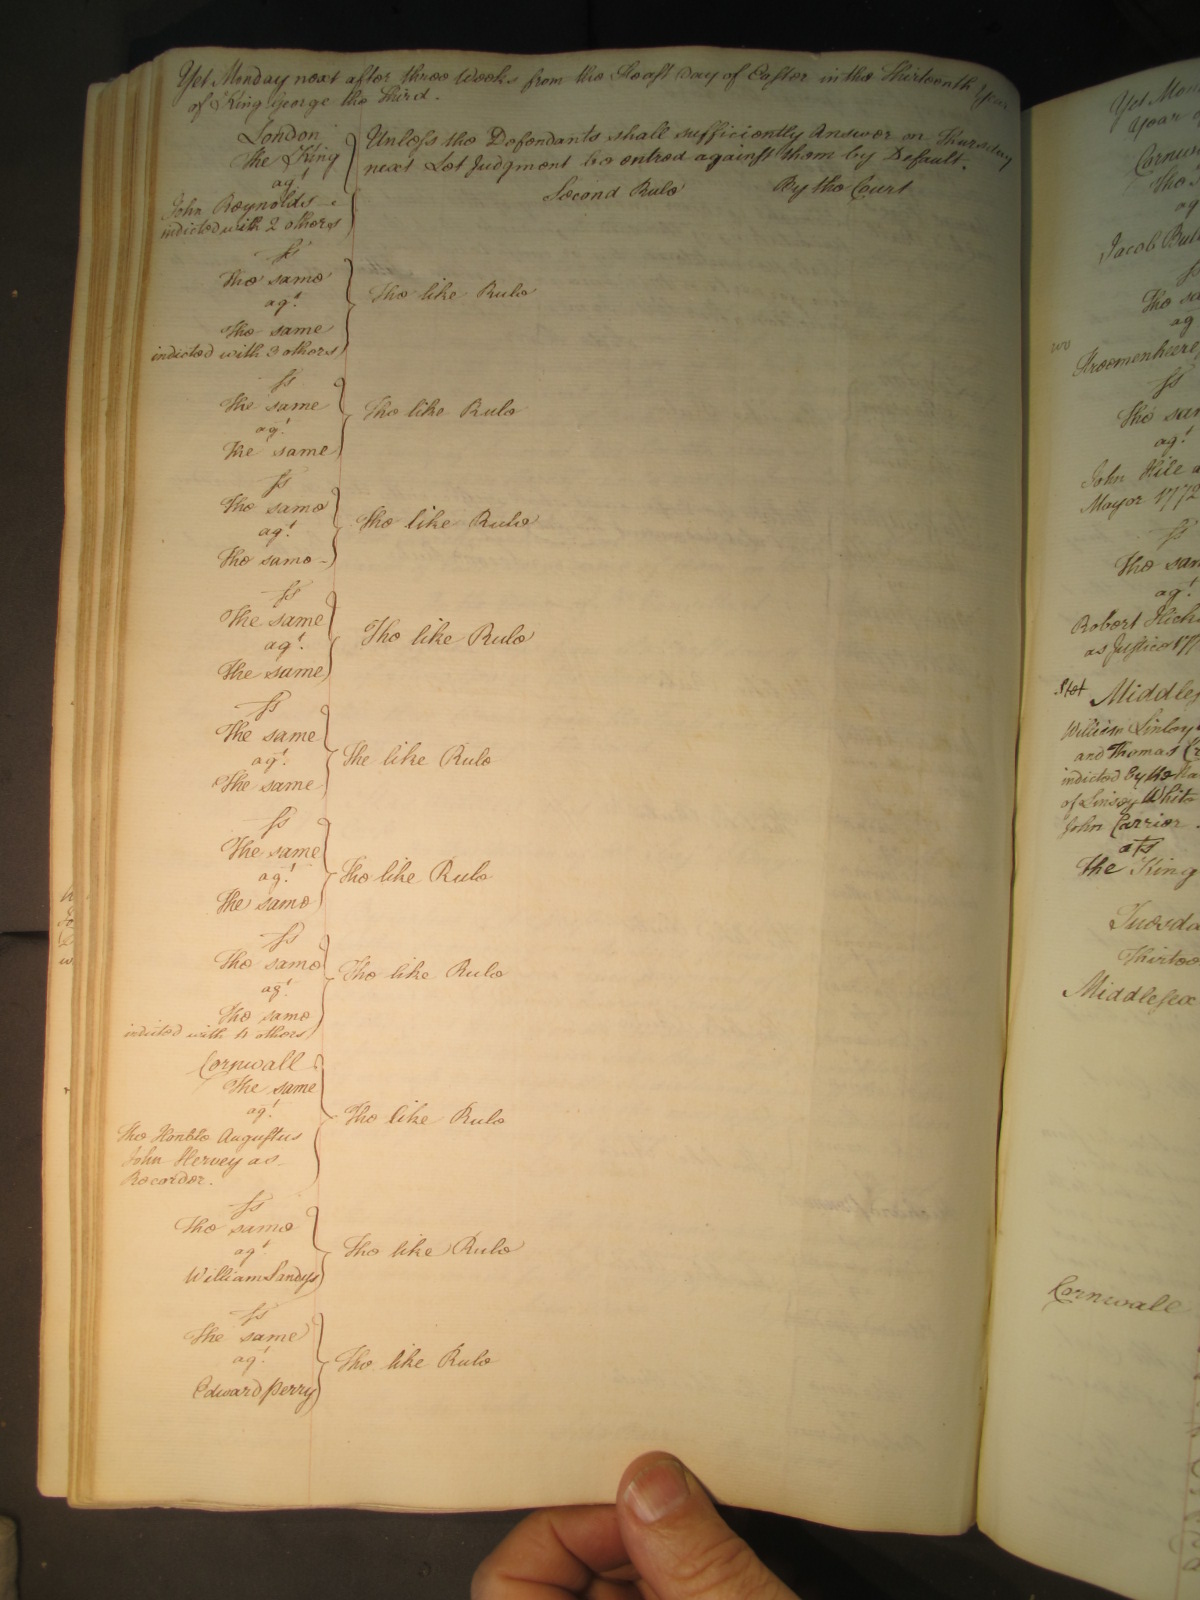 Yet Monday next after three Weeks from the Feast Day of Easter in the Thirteenth Year
of King George the Third.
London
The King
agt
John Reynolds
indicted with 2 others
Unless the Defendants shall sufficiently Answer on Thursday
next Let Judgment be entred against them by Default.
Second Rule By the Court
ss
The same
agt
The same
indicted with 3 others
The like Rule
ss
The same
agt
The same
The like Rule
ss
The same
agt
The same
The like Rule
ss
The same
agt
The same
The like Rule
ss
The same
agt
The same
The like Rule
ss
The same
agt
The same
The like Rule
ss
The same
agt
The same
indicted with 4 others
The like Rule
Cornwall
The same
agt
The Honble Augustus
John Hervey as
Recorder.
The like Rule
ss
The same
agt
William Sandys
The like Rule
ss
The same
agt
Edward Perry
The like Rule
Yet Mon
Year of
Cornw
The s
ag
Jacob Bul
ss
The sa
ag
ss
The sam
agt
John Hile a
Mayor 1772
ss
The sam
agt
Robert Hich
as Justice 177
Stet Middles
William Linley
and Thomas Cr
indicted by the Na
of Linsey White
John Carrier
ats
The King
Tuesda
Thirtee
Middlesex
Cornwall